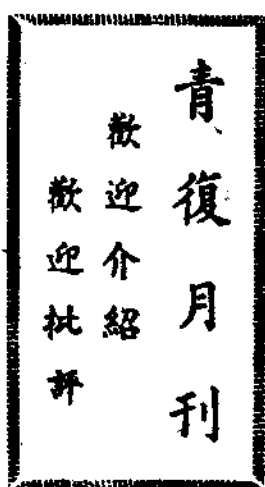 青復月刊
歡迎介紹
歡迎批評